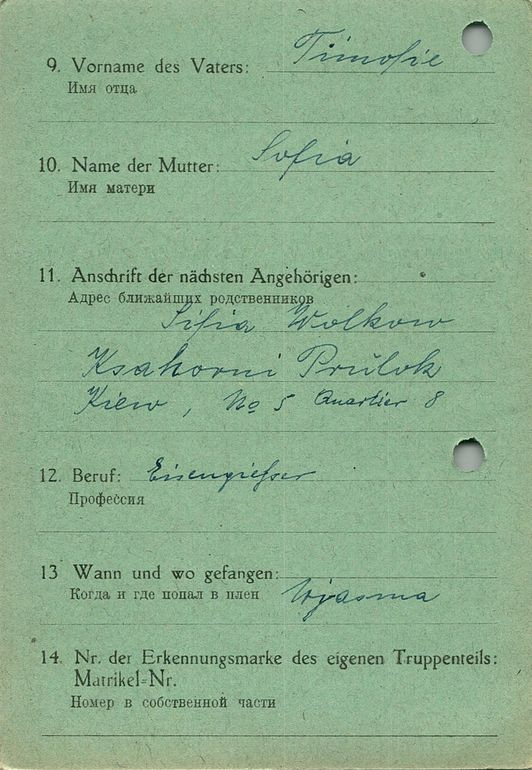 9. Vorname des Vaters: Timofie
Имя отца
10. Name der Mutter: Sofia
Имя матери
11. Anschrift der nächsten Angehörigen:
Адрес ближайших родственников
Sifia Wolkow
Ksahorni Prulok
Kiew, No 5 Quartier 8
12. Beruf: Eisengießer
Профессия
13 Wann und wo gefangen:
Когда и где попал в плен Wjasma
14. Nr. der Erkennungsmarke des eigenen Truppenteils:
Matrikel-Nr.
Номер в собственной части